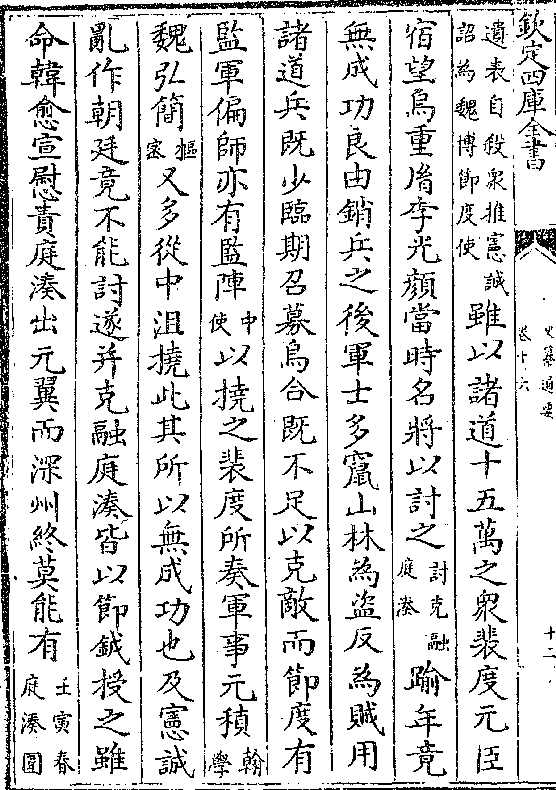 欽定四庫全書
史纂通要
卷十六
十二
遺表自殺衆推憲誠
詔為魏博節度使
雖以諸道十五萬之衆裴度元臣
宿望烏重㣧李光顔當時名將以討之
討克融
庭湊
踰年竟
無成功良由銷兵之後軍士多竄山林為盜反為賊用
諸道兵既少臨期召募烏合既不足以克敵而節度有
監軍偏師亦有監陣
中
使
以撓之裴度所奏軍事元稹
翰
學
魏弘簡
樞
密
又多從中沮撓此其所以無成功也及憲誠
亂作朝廷竟不能討遂并克融庭湊皆以節鉞授之雖
命韓愈宣慰責庭湊出元翼而深州終莫能有
壬寅春
庭湊圍